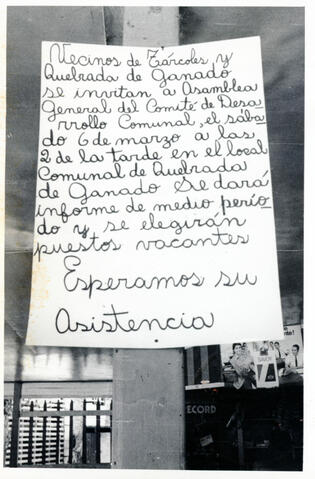 Vecinos de Tárcoles, y
Quebrada de Ganado
se invitan a Asamblea
General del Comité de Desa
rrollo Comunal, el sába
do 6 de marzo a las
2 de la tarde en el local
Comunal de Quebrada
de Ganado Se dará
informe de medio perío-
do y se elegirán
puestos vacantes
Esperamos su
Asistencia
ECORD